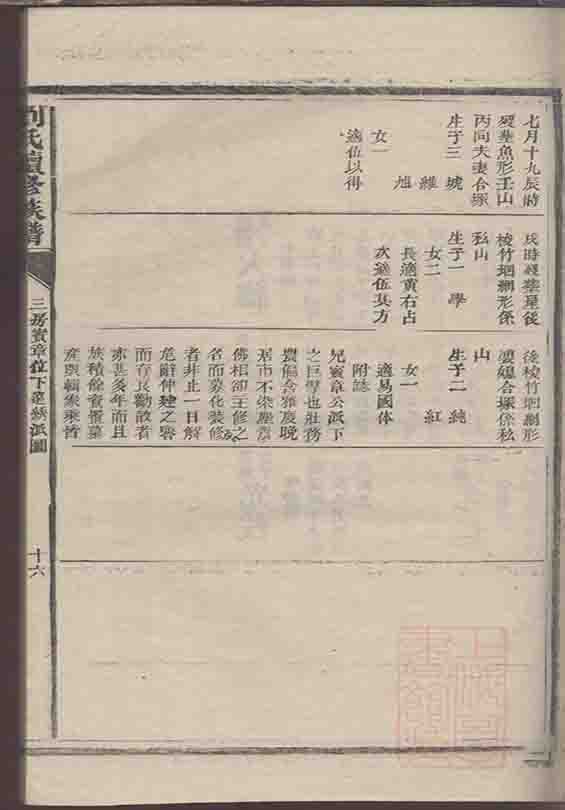 七月十九辰時
歿葬魚形壬山
丙向夫妻合塚
生子三 琥
維
旭
女一
適伍以得
戌時歿葬屋後
棱竹垇湖形係
私山
生子一 學
女二
長適黃右占
次適伍其方
後棱竹垇湖形
妻媳合塚係私
山
生子二 純
紅
女一
適易國体
附誌
兄賓章公派下
之巨擘也壯務
農偏合雍慶晚
居市不染塵氛
佛相卻王修之
名而募化裝修
者非止一日解
危辭仲連之譽
而存良勸故者
亦甚多年而且
族積餘貲置墓
產與輯家乘皆
劉氏續修族譜
三房賓章位下
派圖
十六
上海
圖
書館